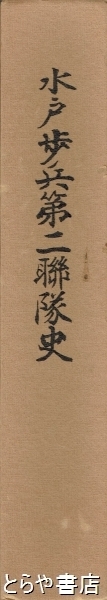 水戸歩兵第二聯隊史
とらや書店